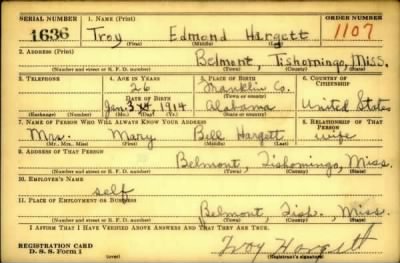 SERIAL NUMBER 1. NAME (Print) ORDER NUMBER
1636 Troy Edmond Hargett 1107
(First) (Middle) (Last)
2. ADDRESS (Print)
Belmont, Tishomingo, Miss.
(Number and street or R. F. D. number) (Town) (County) (State)
3. TELEPHONE 4. AGE IN YEARS 5. PLACE OF BIRTH 6. COUNTRY OF CITIZENSHIP
26 Franklin Co.
DATE OF BIRTH (Town or county)
Jan. 3 1914 Alabama United States
(Exchange) (Number) (Mo.) (Day) (Yr.) (State or country)
7. NAME OF PERSON WHO WILL ALWAYS KNOW YOUR ADDRESS 8. RELATIONSHIP OF THAT PERSON
Mrs. Mary Bell Hargett wife
(Mr., Mrs., Miss) (First) (Middle) (Last)
9. ADDRESS OF THAT PERSON
Belmont, Tishomingo, Miss.
(Number and street or R. F. D. number) (Town) (County) (State)
10. EMPLOYER'S NAME
self
11. PLACE OF EMPLOYMENT OR BUSINESS
Belmont, Tish., Miss.
(Number and street or R. F. D. number) (Town) (County) (State)
I AFFIRM THAT I HAVE VERIFIED ABOVE ANSWERS AND THAT THEY ARE TRUE.
REGISTRATION CARD
D. S. S. Form 1 Troy Hargett
(Registrant's signature)